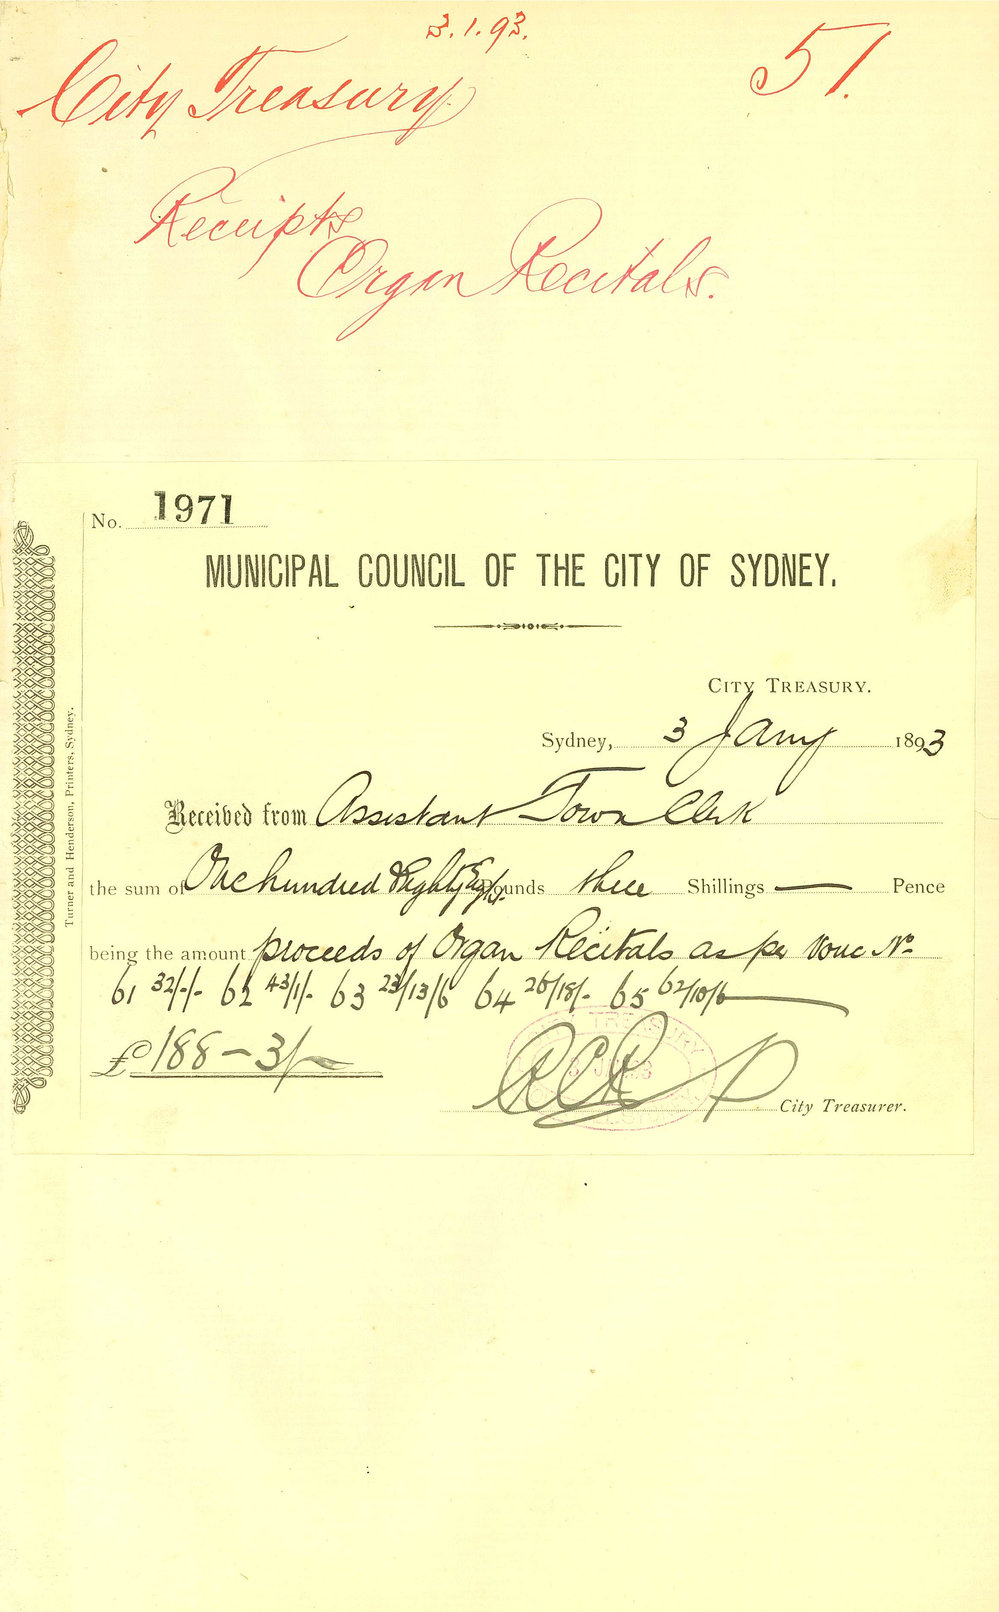 3.1.93.
City Treasury. 51.
Receipts
Organ Recitals.
No. 1971
MUNICIPAL COUNCIL OF THE CITY OF SYDNEY.
CITY TREASURY.
Sydney, 3 Jany 1893
Received from Assistant Town Clerk
the sum of One hundred & Eighty Eight Pounds three Shillings — Pence
being the amount proceeds of Organ Recitals as per Vouc No
61 32/-/- 62 43/1/- 63 23/13/6 64 26/18/- 65 62/10/6
£188-3/-
TREASURY
City Treasurer.
Turner and Henderson, Printers, Sydney.